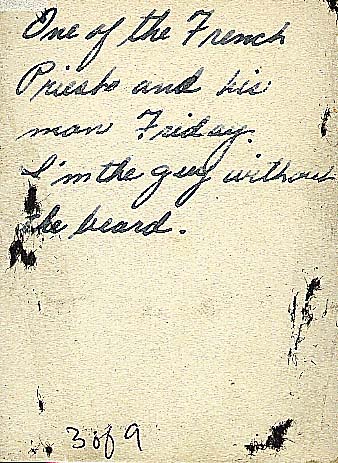 One of the French
Priests and his
man Friday.
I'm the guy without
the beard.
3 of 9